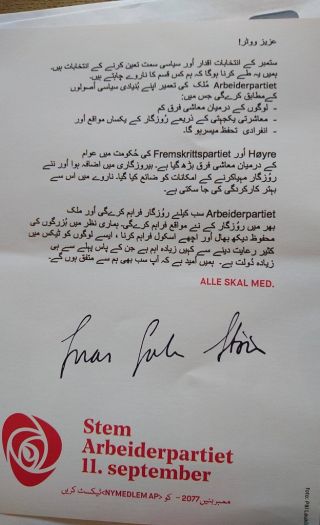 عزیز ووٹر!
ستمبر کے انتخابات اقدار اور سیاسی سمت تعین کرنے کے انتخابات ہیں.
ہمیں یہ طے کرنا ہوگا کہ ہم کس قسم کا ناروے چاہتے ہیں.
Arbeiderpartiet مُلک کی تعمیر اپنے بُنیادی سیاسی اُصولوں
کےمطابق کرےگی جس میں:
- لوگوں کے درمیان معاشی فرق کم
- معاشرتی یکجہتی کے ذریعے رُوزگار کے یکساں مواقع اور
- انفرادی تحفظ میسرہو گا.
Høyre اُور Fremskrittspartiet کی حُکومت میں عوام
کے درمیان معاشی فرق بڑھ گیا ہے. بیروزگاری میں اضافہ ہوا اور نئے
رُوزگار مہیاکرنے کے امکانات کو ضائع کیا گیا. ناروے میں اس سے
بہتر کارکردگی کی جا سکتی ہے.
Arbeiderpartiet سب کیلئے رُوزگار فراہم کرےگی اور ملک
بھر میں رُوزگار کے نئے مواقع فراہم کرےگی. ہماری نظر میں بُزرگوں کی
محفوظ دیکھ بھال اور اچھے اسکول فراہم کرنا ، ایسے لوگوں کو ٹیکس میں
کثیر رعایت دینے سے کہیں زیادہ اہم ہے جن کے پاس پہلے سے ہی
زیادہ دَولت ہے. ہمیں اُمید ہے کہ آپ سب بھی ہم سے متفق ہوں گے.
ALLE SKAL MED.
Jonas Gahr Støre
Stem
Arbeiderpartiet
11. september
ممبر بنیں 2077 - کو <NYMEDLEM AP> ٹیکسٹ کریں